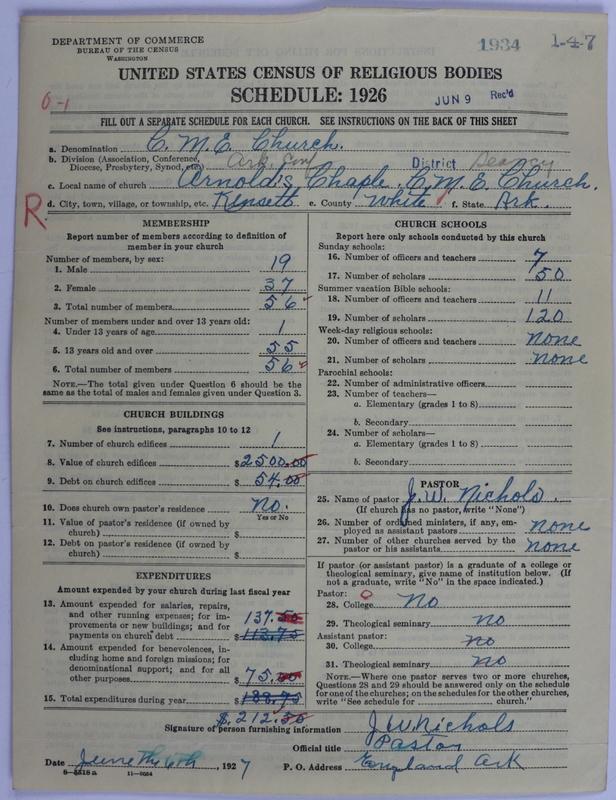 DEPARTMENT OF COMMERCE
BUREAU OF THE CENSUS
WASHINGTON
1934
1-4-7
UNITED STATES CENSUS OF RELIGIOUS BODIES
SCHEDULE: 1926
JUN 9 Rec'd
0-1
FILL OUT A SEPARATE SCHEDULE FOR EACH CHURCH. SEE INSTRUCTIONS ON THE BACK OF THIS SHEET
a. Denomination C. M. E. Church.
b. Division (Association, Conference, Diocese, Presbytery, Synod, etc.) Ark. Conf District Searcy
c. Local name of church Arnold's Chaple C. M. E. Church.
R
d. City, town, village, or township, etc. Kensett e. County White f. State Ark.
MEMBERSHIP
Report number of members according to definition of
member in your church
Number of members, by sex:
1. Male 19
2. Female 37
3. Total number of members 56
Number of members under and over 13 years old:
4. Under 13 years of age 1
5. 13 years old and over 55
6. Total number of members 56
NOTE.—The total given under Question 6 should be
same as the total of males and females given under Question 3.
CHURCH BUILDINGS
See instructions, paragraphs 10 to 12
7. Number of church edifices 1
8. Value of church edifices $2500.00
9. Debt on church edifices $54.00
10. Does church own pastor's residence no.
Yes or No
11. Value of pastor's residence (if owned by
church) $
12. Debt on pastor's residence (if owned by
church) $
EXPENDITURES
Amount expended by your church during last fiscal year
13. Amount expended for salaries, repairs,
and other running expenses; for im-
provements or new buildings; and for
payments on church debt $ 137.50
113.75
14. Amount expended for benevolences, in-
cluding home and foreign missions; for
denominational support; and for all
other purposes $75.00
15. Total expenditures during year $188.75
$212.50
CHURCH SCHOOLS
Report here only schools conducted by this church
Sunday schools:
16. Number of officers and teachers 7
17. Number of scholars 50
Summer vacation Bible schools:
18. Number of officers and teachers 11
19. Number of scholars 120
Week-day religious schools:
20. Number of officers and teachers none
21. Number of scholars none
Parochial schools:
22. Number of administrative officers
23. Number of teachers—
a. Elementary (grades 1 to 8)
b. Secondary
24. Number of scholars—
a. Elementary (grades 1 to 8)
b. Secondary
PASTOR
25. Name of pastor J. W. Nichols.
(If church has no pastor, write "None")
26. Number of ordained ministers, if any, em-
ployed as assistant pastors none
27. Number of other churches served by the
pastor or his assistants none
If pastor (or assistant pastor) is a graduate of a college or
theological seminary, give name of institution below. (If
not a graduate, write "No" in the space indicated.)
Pastor: 0
28. College No
29. Theological seminary no
Assistant pastor:
30. College no
31. Theological seminary no
NOTE.—Where one pastor serves two or more churches,
Questions 28 and 29 should be answered only on the schedule
for one of the churches; on the schedules for the other churches,
write "See schedule for church."
Signature of person furnishing information J W Nichols
Official title Pastor
Date June The 6th, 1927 P. O. Address England Ark
8-5518a 11-9554